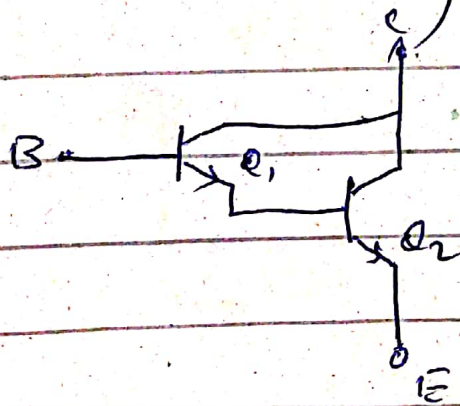 C
B
Q1
Q2
E